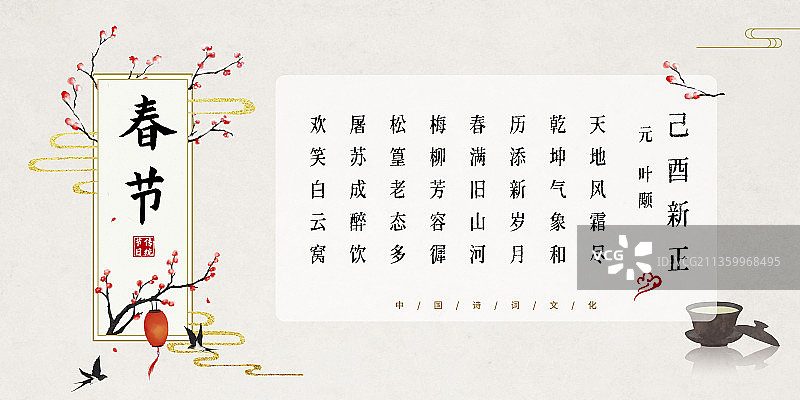 春节
传统
节日
己酉新正
元 叶颙
天地风霜尽
乾坤气象和
历添新岁月
春满旧山河
梅柳芳容徲
松篁老态多
屠苏成醉饮
欢笑白云窝
中/国/诗/词/文/化
视觉中国
VCG211359968495